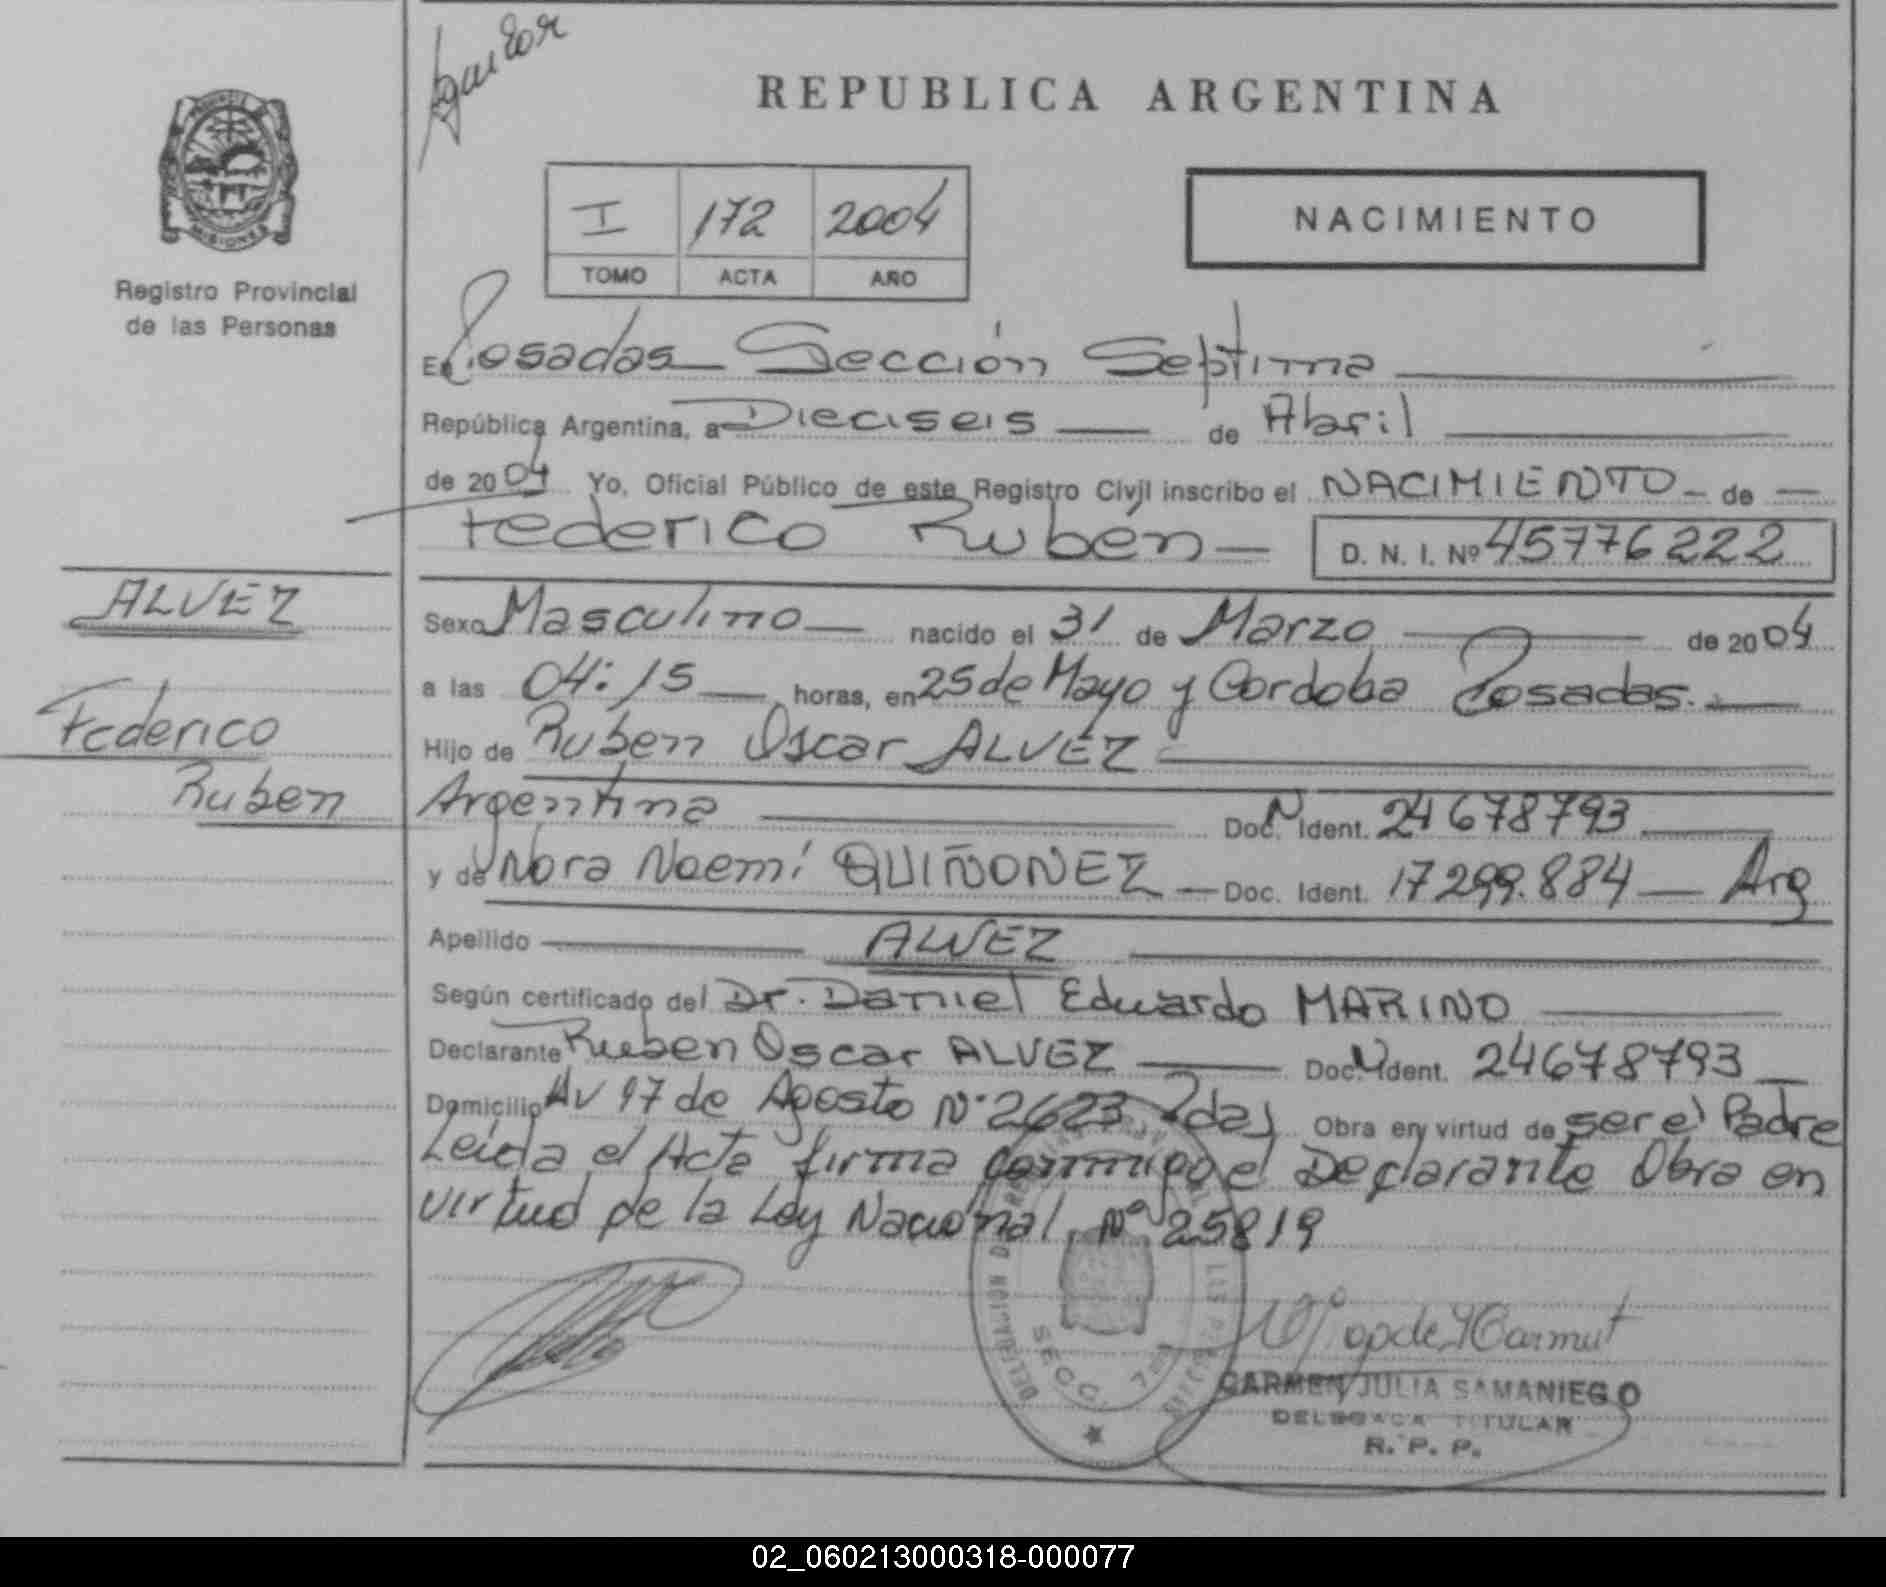 Aguilar
REPUBLICA ARGENTINA
MISIONES
Registro Provincial
de las Personas
I 172 2004
TOMO ACTA AÑO
NACIMIENTO
En Posadas Sección Septima
República Argentina, a Dieciseis de Abril
de 2004 Yo, Oficial Público de este Registro Civil inscribo el NACIMIENTO de
Federico Ruben D. N. I. Nº 45776222
ALVEZ
Federico
Ruben
Sexo Masculino nacido el 31 de Marzo de 2004
a las 04:15 horas, en 25 de Mayo y Cordoba Posadas.
Hijo de Ruben Oscar ALVEZ
Argentina Doc. N Ident. 24678793
y de Nora Noemí QUIÑONEZ Doc. Ident. 17299.884 Arg
Apellido ALVEZ
Según certificado del Dr. Daniel Eduardo MARINO
Declarante Ruben Oscar ALVEZ Doc. N Ident. 24678793
Domicilio Av 17 de Agosto Nº 2623 Pdas Obra en virtud de ser el Padre
Leida el Acta firma conmigo el Declarante Obra en
virtud de la Ley Nacional Nº 25819
SECC. 7ma
CARMEN JULIA SAMANIEGO
DELEGADA TITULAR
R. P. P.
02_060213000318-000077